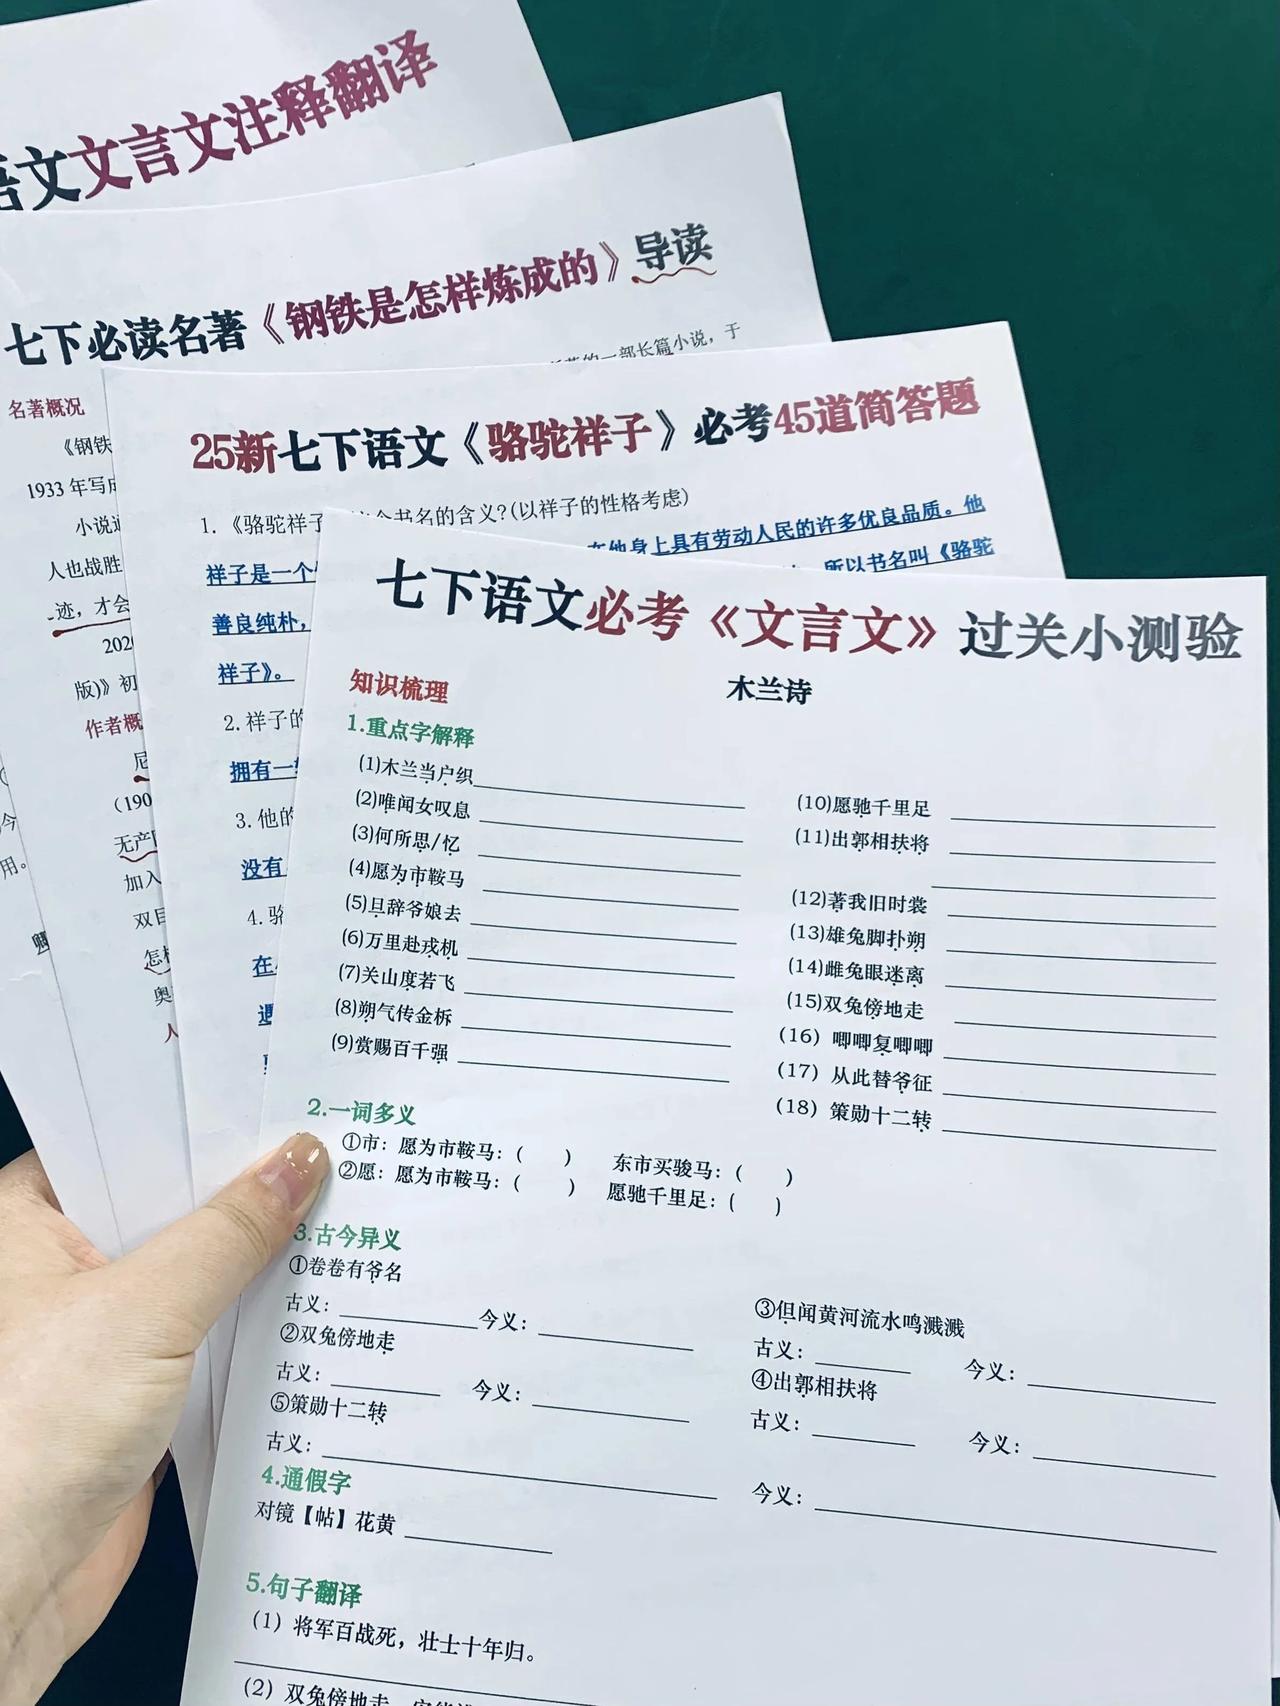 语文文言文注释翻译
七下必读名著《钢铁是怎样炼成的》导读
的一部长篇小说，于
名著概况
《钢铁
1933年写成
小说
人也战胜
迹，才会
202
版)》初
作者概
尼
（190
无产
加入
双目
怎样
奥
人
今
用。
25新七下语文《骆驼祥子》必考45道简答题
1.《骆驼祥子 书名的含义?(以祥子的性格考虑)
祥子是一个 在他身上具有劳动人民的许多优良品质。他
善良纯朴， 所以书名叫《骆驼
祥子》。
2.祥子的
拥有一
3.他的
没有
4.骆
在
遇
七下语文必考《文言文》过关小测验
知识梳理
木兰诗
1.重点字解释
(1)木兰当户织
(2)唯闻女叹息
(3)何所思/忆
(4)愿为市鞍马
(5)旦辞爷娘去
(6)万里赴戎机
(7)关山度若飞
(8)朔气传金柝
(9)赏赐百千强
(10)愿驰千里足
(11)出郭相扶将
(12)著我旧时裳
(13)雄兔脚扑朔
(14)雌兔眼迷离
(15)双兔傍地走
(16）唧唧复唧唧
(17）从此替爷征
(18）策勋十二转
2.一词多义
①市：愿为市鞍马：（ ） 东市买骏马：（ ）
②愿：愿为市鞍马：（ ） 愿驰千里足：（ ）
3.古今异义
①卷卷有爷名
古义： 今义：
②双兔傍地走
古义： 今义：
⑤策勋十二转
古义：
③但闻黄河流水鸣溅溅
古义： 今义：
④出郭相扶将
古义： 今义：
今义：
4.通假字
对镜【帖】花黄
5.句子翻译
（1）将军百战死，壮士十年归。
（2）双兔傍地走，安能